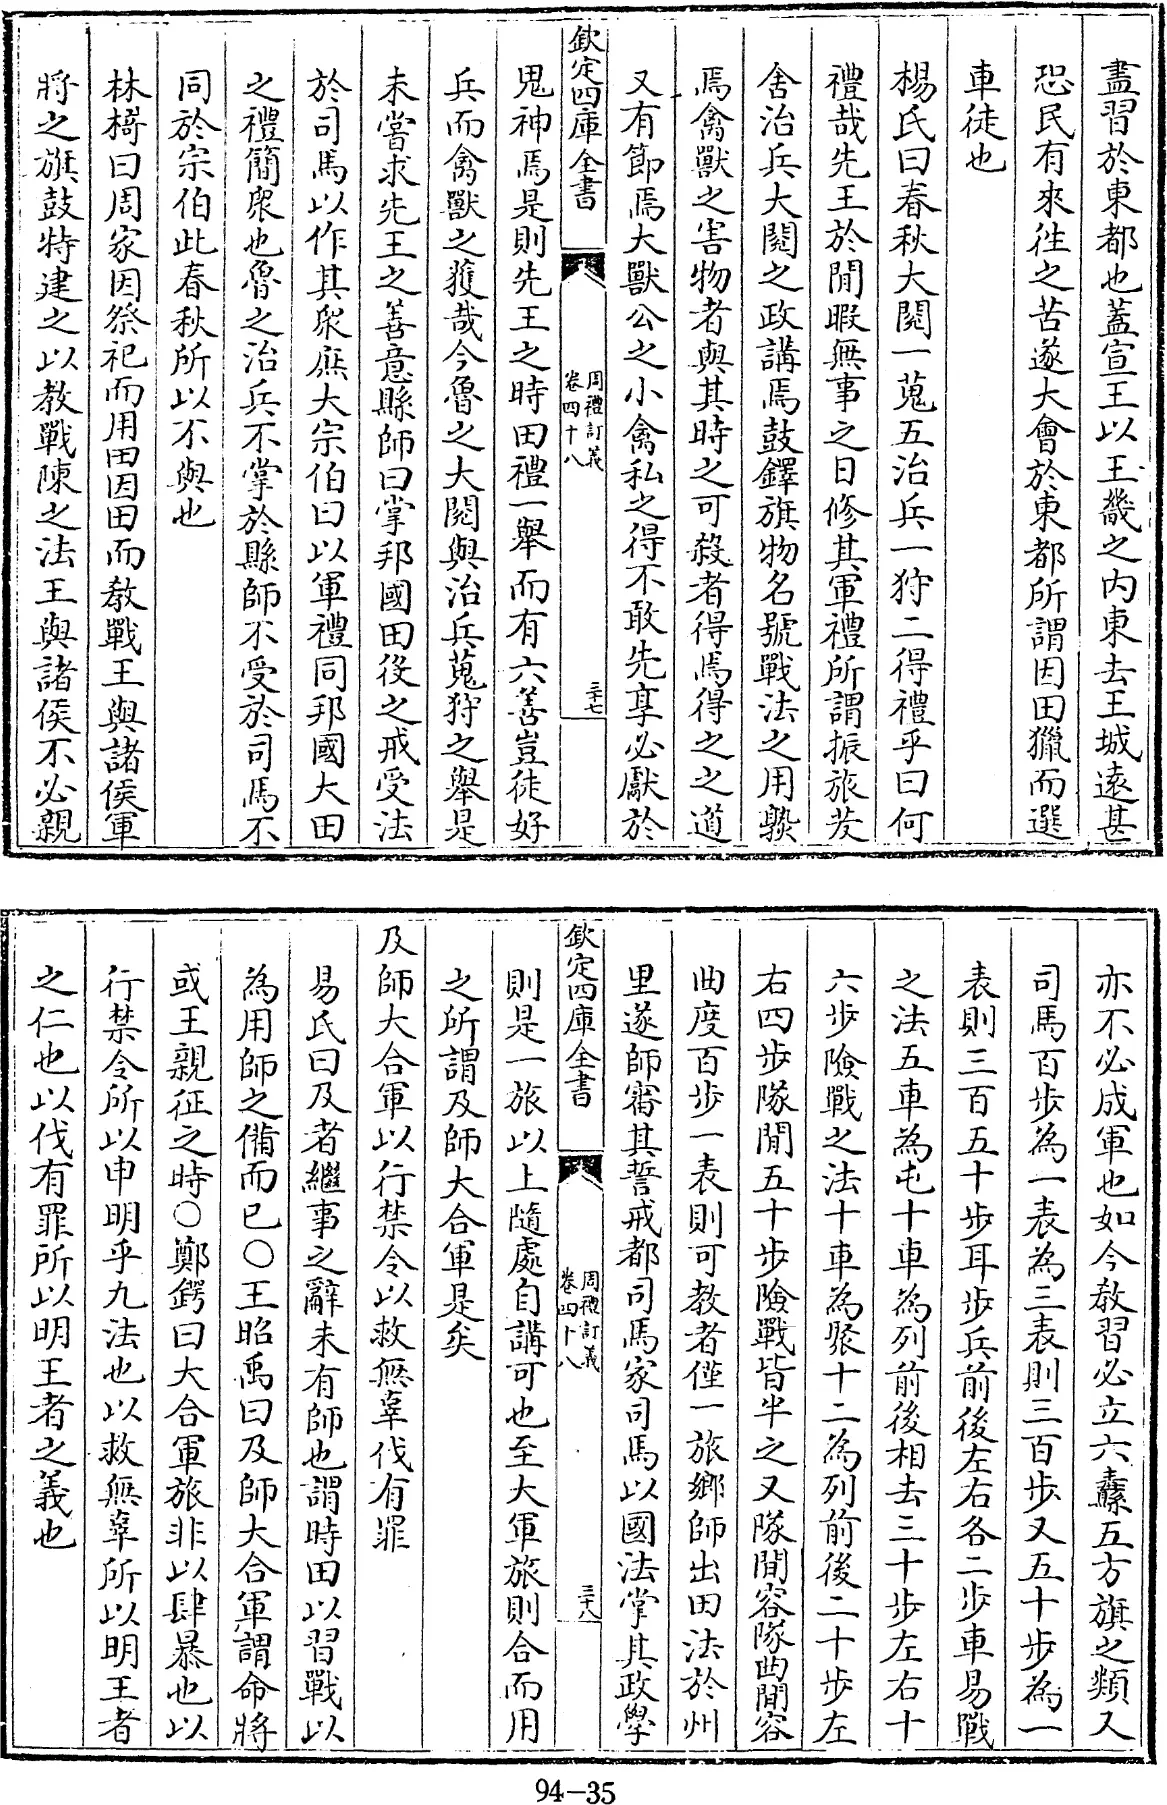 盡習於東都也蓋宣王以王畿之内東去王城逺甚
恐民有來徃之苦遂大會於東都所謂因田獵而選
車徒也
楊氏曰春秋大閲一蒐五治兵一狩二得禮乎曰何
禮哉先王於閒暇無事之日修其軍禮所謂振旅茇
舍治兵大閲之政講焉鼓鐸旗物名號戰法之用𩔖
焉禽獸之害物者與其時之可殺者得焉得之之道
又有節焉大獸公之小禽私之得不敢先享必獻於
欽定四庫全書
周禮訂義
卷四十八
三十七
鬼神焉是則先王之時田禮一舉而有六善豈徒好
兵而禽獸之獲哉今魯之大閲與治兵蒐狩之舉是
未嘗求先王之善意縣師曰掌邦國田役之戒受法
於司馬以作其衆庶大宗伯曰以軍禮同邦國大田
之禮簡衆也魯之治兵不掌於縣師不受於司馬不
同於宗伯此春秋所以不與也
林椅曰周家因祭祀而用田因田而敎戰王與諸侯軍
將之旗鼓特建之以教戰陳之法王與諸侯不必親
亦不必成軍也如今敎習必立六纛五方旗之類又
司馬百步為一表為三表則三百步又五十步為一
表則三百五十步耳步兵前後左右各二步車易戰
之法五車為屯十車為列前後相去三十步左右十
六步險戰之法十車為聚十二為列前後二十步左
右四步隊閒五十步險戰皆半之又隊閒容隊曲閒容
曲度百步一表則可教者僅一旅鄉師出田法於州
里遂師審其誓戒都司馬家司馬以國法掌其政學
欽定四庫全書
周禮訂義
卷四十八
三十八
則是一旅以上隨處自講可也至大軍旅則合而用
之所謂及師大合軍是矣
及師大合軍以行禁令以救無辜伐有罪
易氏曰及者繼事之辭未有師也謂時田以習戰以
為用師之備而已○王昭禹曰及師大合軍謂命將
或王親征之時○鄭鍔曰大合軍旅非以肆暴也以
行禁令所以申明乎九法也以救無辜所以明王者
之仁也以伐有罪所以明王者之義也
94-35